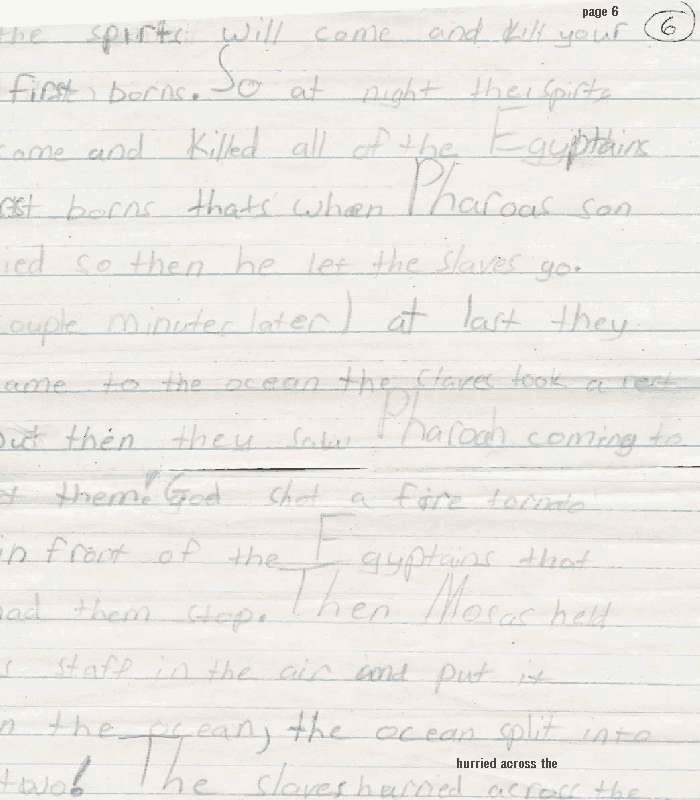 page 6
the spirts will come and kill your 6
first borns. So at night the spirts
come and killed all of the Egyptains
ast borns thats when Pharoas son
ied so then he let the slaves go.
ouple minutes later) at last they
ame to the ocean the slaves took a rest
but then they saw Pharoah coming to
t them! God shot a fire tornado
in front of the Egyptains that
ad them stop. Then Mosas held
s staff in the air and put it
n the ocean, the ocean split into
hurried across the
two! The slaves hurried across the